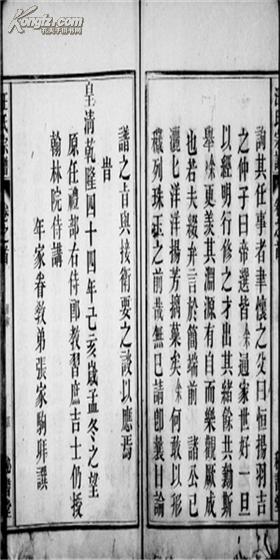 詢其任事者聿懷之父曰恒揚羽吉
之仲子曰帝選皆余通家世好一旦
以經明行修之才出其緒餘共勷斯
舉余更羙其淵源有自而樂觀厥成
也若夫綴弁言於簡端前代名公巳
灑七洋洋揚芳摛藻矣余何敢以形
穢列珠玉之前哉無巳請卽曩日論
譜之㫖與接術要之談以應焉
旹
皇清乾隆四十四年己亥歲孟冬之望
原任禮部右侍郎教習庶吉士仍授
翰林院侍講
年家眷敎弟張家駒拜撰
孔夫子旧书网